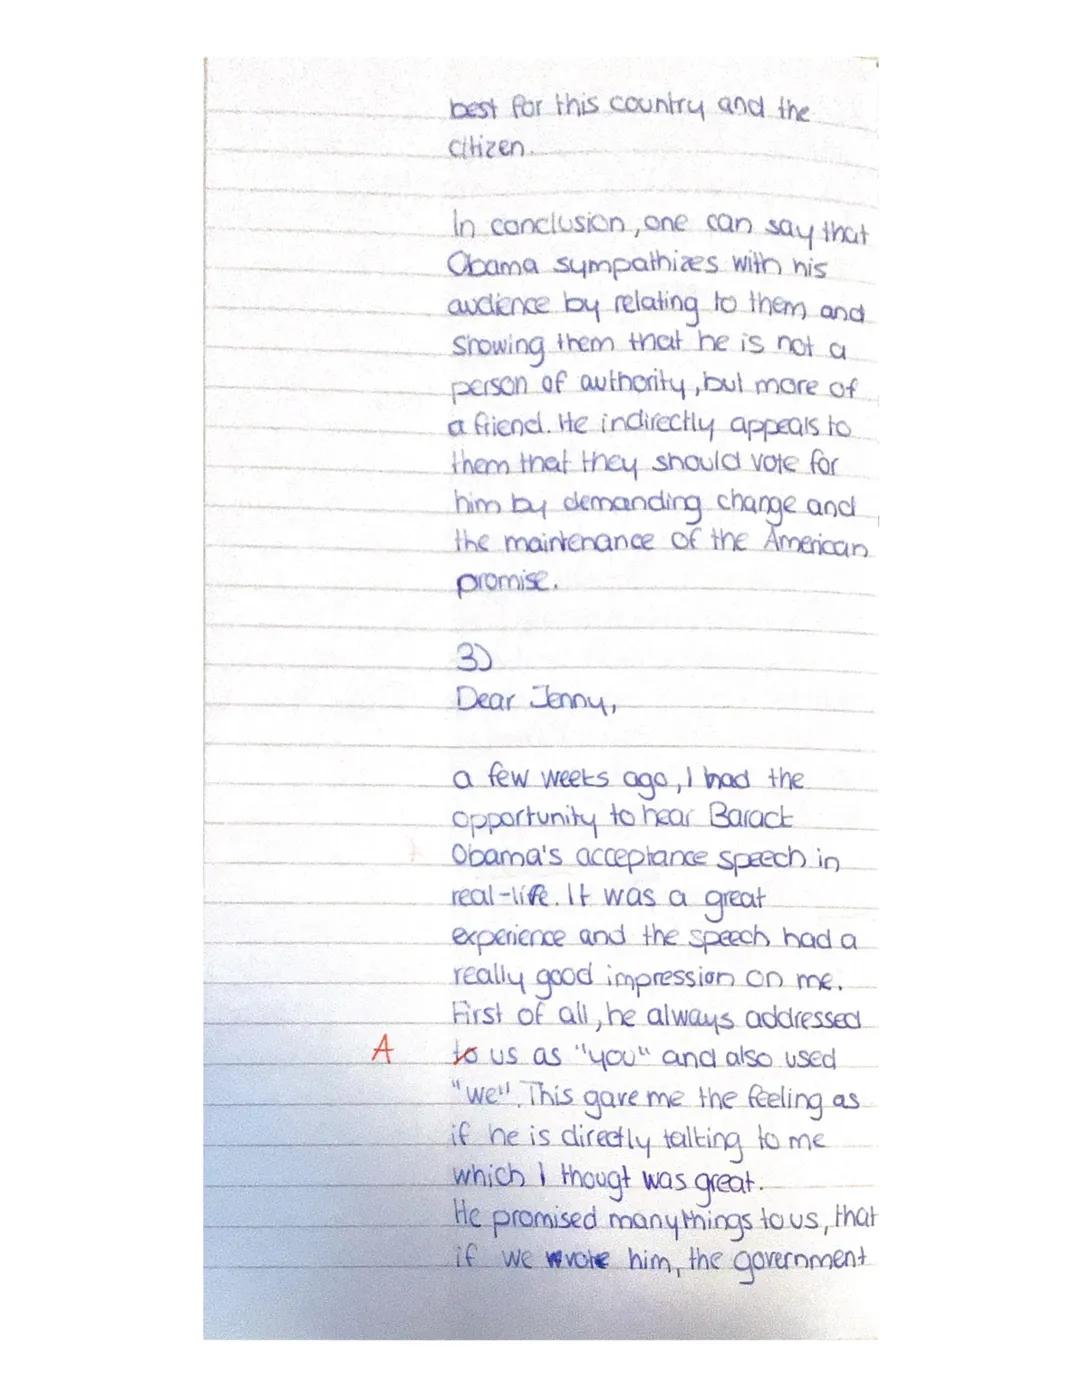 best for this country and the
citizen.
In conclusion, one can say that
Obama sympathizes with his
audience by relating to them and
showing them that he is not a
person of authority, but more of
a friend. He indirectly appeals to
them that they should vote for
him by demanding change and
the maintenance of the American
promise.
3)
Dear Jenny,
a few weeks ago, I had the
opportunity to hear Barack
Obama's acceptance speech in
real-life. It was a great
experience and the speech had a
really good impression on me.
First of all, he always addressed
A to us as "you" and also used
"we". This gave me the feeling as
if he is directly talking to me
which I thougt was great.
He promised many things to us, that
if we vote him, the government